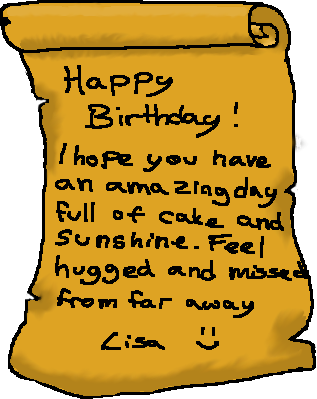 Happy
Birthday!
I hope you have
an amazing day
full of cake and
sunshine. Feel
hugged and missed
from far away
Lisa :)